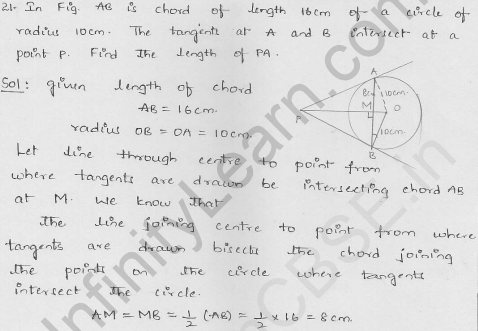 21- In Fig. AB is chord of length 16cm of a circle of
radius 10cm. The tangents at A and B intersect at a
point P. Find the length of PA.
Sol: given length of chord
AB = 16cm.
radius OB = OA = 10cm.
A
8
10cm.
M
O
P
L
10cm
B
Let line through centre to point from
where tangents are drawn be intersecting chord AB
at M. we know that
The line joining centre to point from where
tangents are drawn bisects the chord joining
the points on the circle where tangents
intersect the circle.
AM = MB = 1/2 (AB) = 1/2 × 16 = 8cm.
InfinityLearn.com
CBSE.in